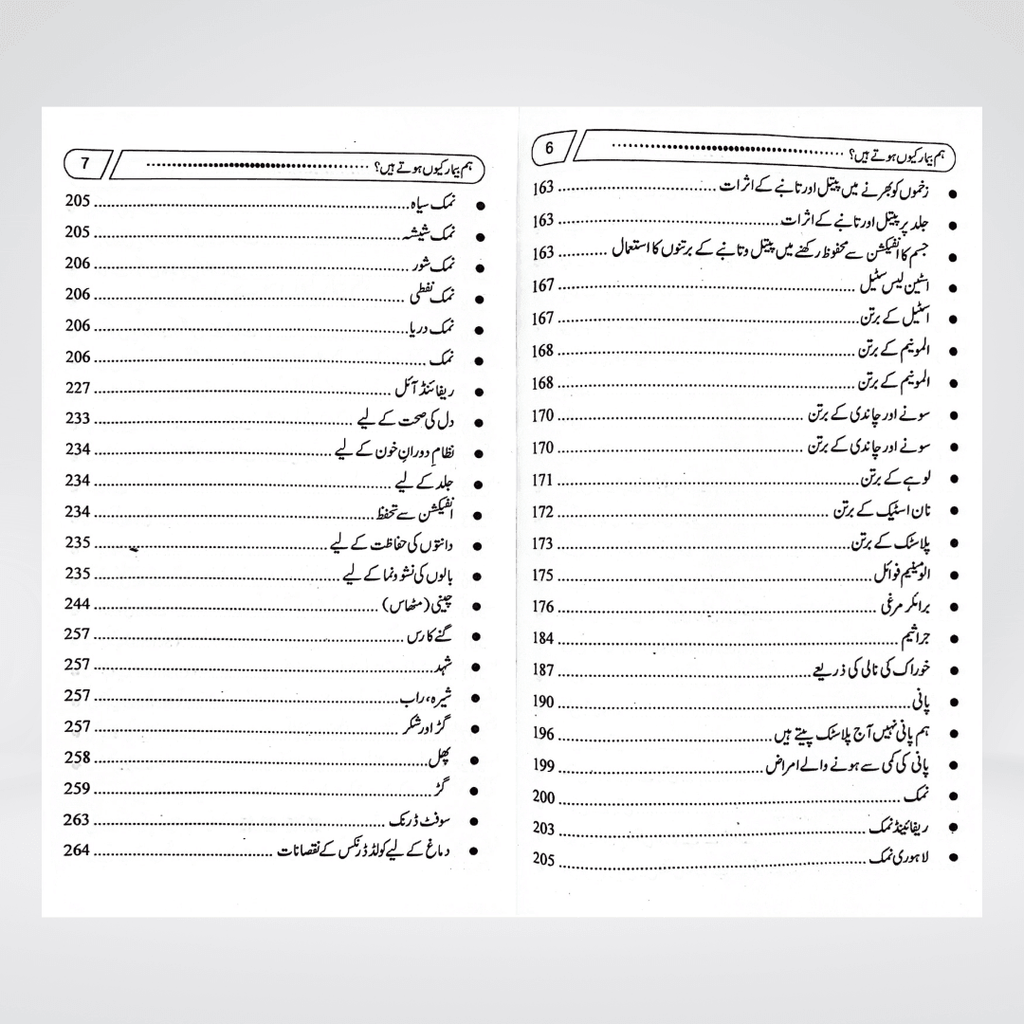 ہم بیمار کیوں ہوتے ہیں؟ 6
زخموں کو بھرنے میں پیتل اور تانبے کے اثرات 163
جلد پر پیتل اور تانبے کے اثرات 163
جسم کا انفیکشن سے محفوظ رکھنے میں پیتل و تانبے کے برتنوں کا استعمال 163
اسٹین لیس سٹیل 167
اسٹیل کے برتن 167
المونیم کے برتن 168
المونیم کے برتن 168
سونے اور چاندی کے برتن 170
سونے اور چاندی کے برتن 170
لوہے کے برتن 171
نان اسٹیک کے برتن 172
پلاسٹک کے برتن 173
الومینیم فوائل 175
برائلر مرغی 176
جراثیم 184
خوراک کی نالی کی ذریعے 187
پانی 190
ہم پانی نہیں آج پلاسٹک پیتے ہیں 196
پانی کی کمی سے ہونے والے امراض 199
نمک 200
ریفائینڈ نمک 203
لاہوری نمک 205
ہم بیمار کیوں ہوتے ہیں؟ 7
نمک سیاہ 205
نمک شیشہ 205
نمک شور 206
نمک نفطی 206
نمک دریا 206
نمک 206
ریفائنڈ آئل 227
دل کی صحت کے لیے 233
نظامِ دورانِ خون کے لیے 234
جلد کے لیے 234
انفیکشن سے تحفظ 234
دانتوں کی حفاظت کے لیے 235
بالوں کی نشوونما کے لیے 235
چینی (مٹھاس) 244
گنے کا رس 257
شہد 257
شیرہ، راب 257
گڑ اور شکر 257
پھل 258
گڑ 259
سوفٹ ڈرنک 263
دماغ کے لیے کولڈ ڈرنکس کے نقصانات 264